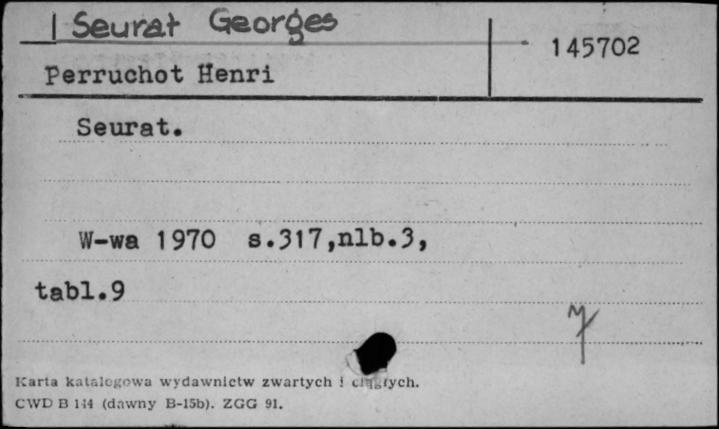 1 Seurat Georges
145702
Perruchot Henri
Seurat.
W-wa 1970 s.317,nlb.3,
tabl.9
Karta katalogowa wydawnictw zwartych i ciągłych.
CWD B 144 (dawny B-15b). ZGG 91.